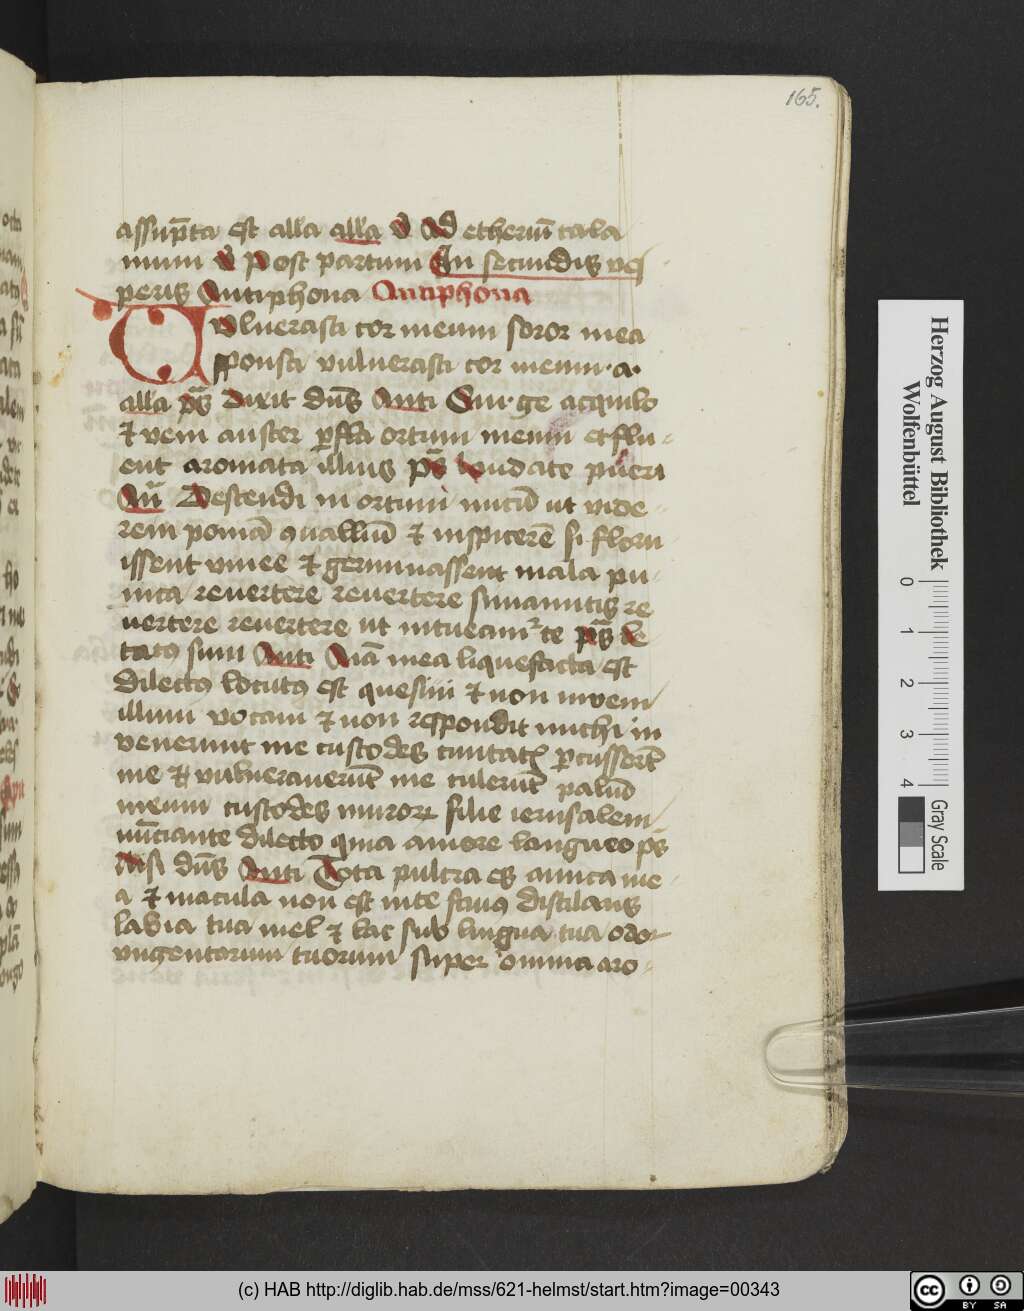 165.
assūpta est alla alla v Ad etheriū tala
mum v Post partum In secundis ves
peris Antiphona Antiphona
Vvlnerasti cor meum soror mea
sponsa vulnerasti cor meum. a.
alla ps Dixit dns Anti Sur.ge acquilo
et veni auster pfla ortum meum et flu-
ent aromata illius ps laudate pueri
An Descendi in ortum nucū ut vide-
rem pomā quallium et inspicerē si floru
issent vinee et germinassent mala pu-
nica reuertere reuertere sunamitis re
uertere reuertere ut intueamʳ te ps le
tatꝰ sum Anti Aīa mea liquefacta est
dilectꝰ locutꝰ est quesiui et non inveni
illum vocaui et non respondit michi in
venerunt me custodes ciuitatꝭ pcusserūt
me et vulnerauerūt me tulerūt paliū
meum custodes muroꝝ filie ierusalem
nūciante dilecto quia amore langueo ps
nisi dns Anti Tota pulcra es amica me
a et macula non est in te fauꝰ distilans
labia tua mel et lac sub lingua tua odor
vngentorum tuorum super omnia aro-
Herzog August Bibliothek
Wolfenbüttel
0 1 2 3 4
Gray Scale
(c) HAB http://diglib.hab.de/mss/621-helmst/start.htm?image=00343
cc BY SA